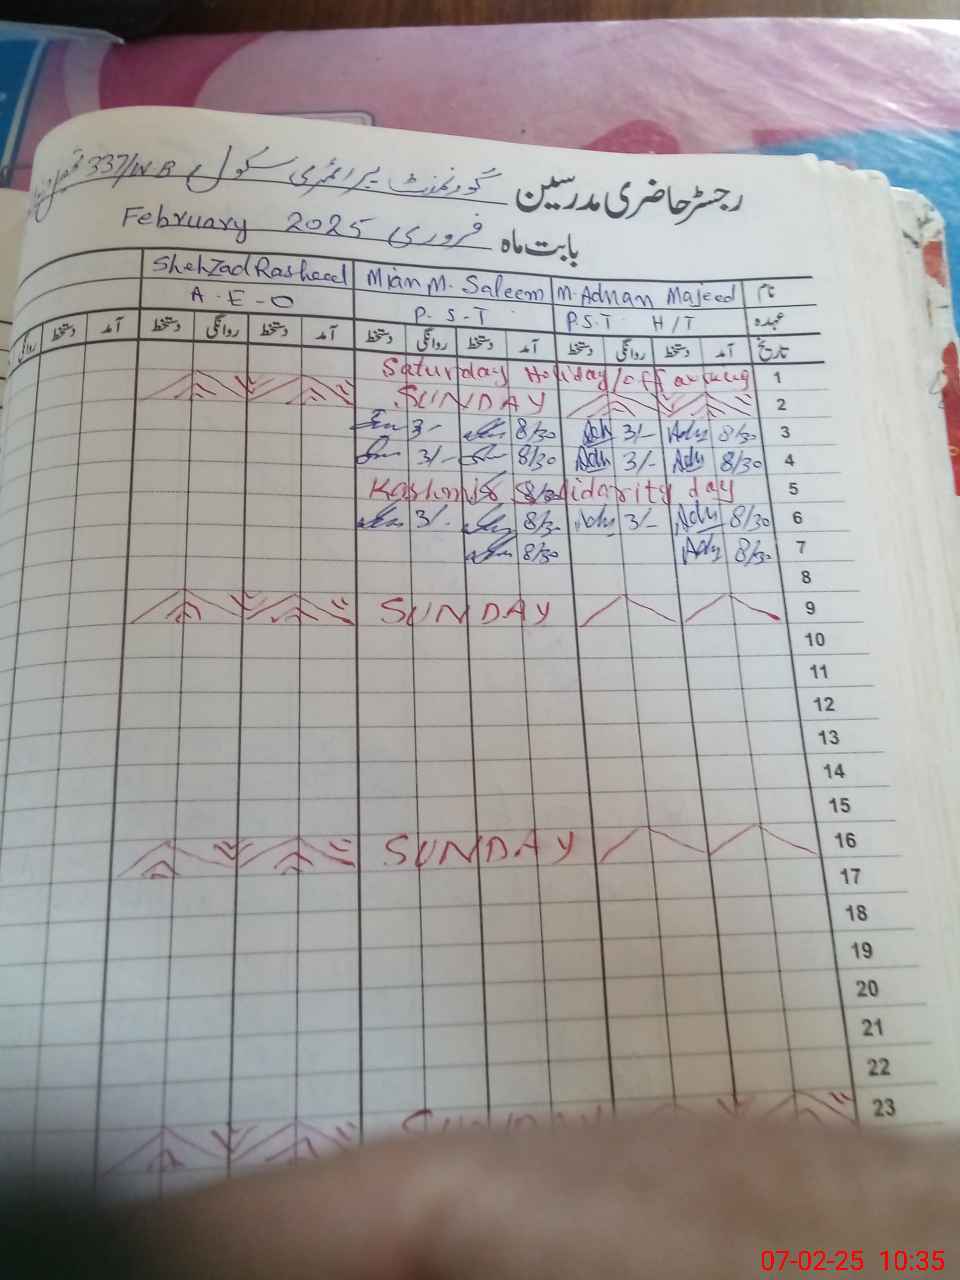 رجسٹر حاضری مدرسین گورنمنٹ پرائمری سکول 337/W B
بابت ماہ فروری 2025 February
نام M. Adnan Majeed Mian M. Saleem Shehzad Rasheed
عہدہ P.S.T H/T P.S.T A.E.O
تاریخ آمد دستخط روانگی دستخط آمد دستخط روانگی دستخط آمد دستخط روانگی دستخط آمد دستخط
1 Saturday Holiday/off
2 SUNDAY
3 8/30 Adn 3/- Adn 8/30 3/-
4 8/30 Adn 3/- Adn 8/30 3/-
5 Kashmir Solidarity day 8/30
6 8/30 Adn 3/- Adn 8/30 3/-
7 8/30 Adn 8/30
8
9 SUNDAY
10
11
12
13
14
15
16 SUNDAY
17
18
19
20
21
22
23 SUNDAY
07-02-25 10:35